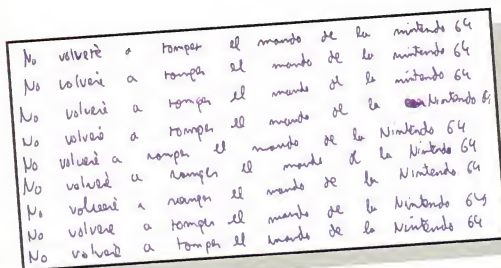 No volveré a romper el mando de la nintendo 64
No volveré a romper el mando de la nintendo 64
No volveré a romper el mando de la nintendo 64
No volveré a romper el mando de la Nintendo 64
No volveré a romper el mando de la Nintendo 64
No volveré a romper el mando de la Nintendo 64
No volveré a romper el mando de la Nintendo 64
No volveré a romper el mando de la Nintendo 64
No volveré a romper el mando de la Nintendo 64